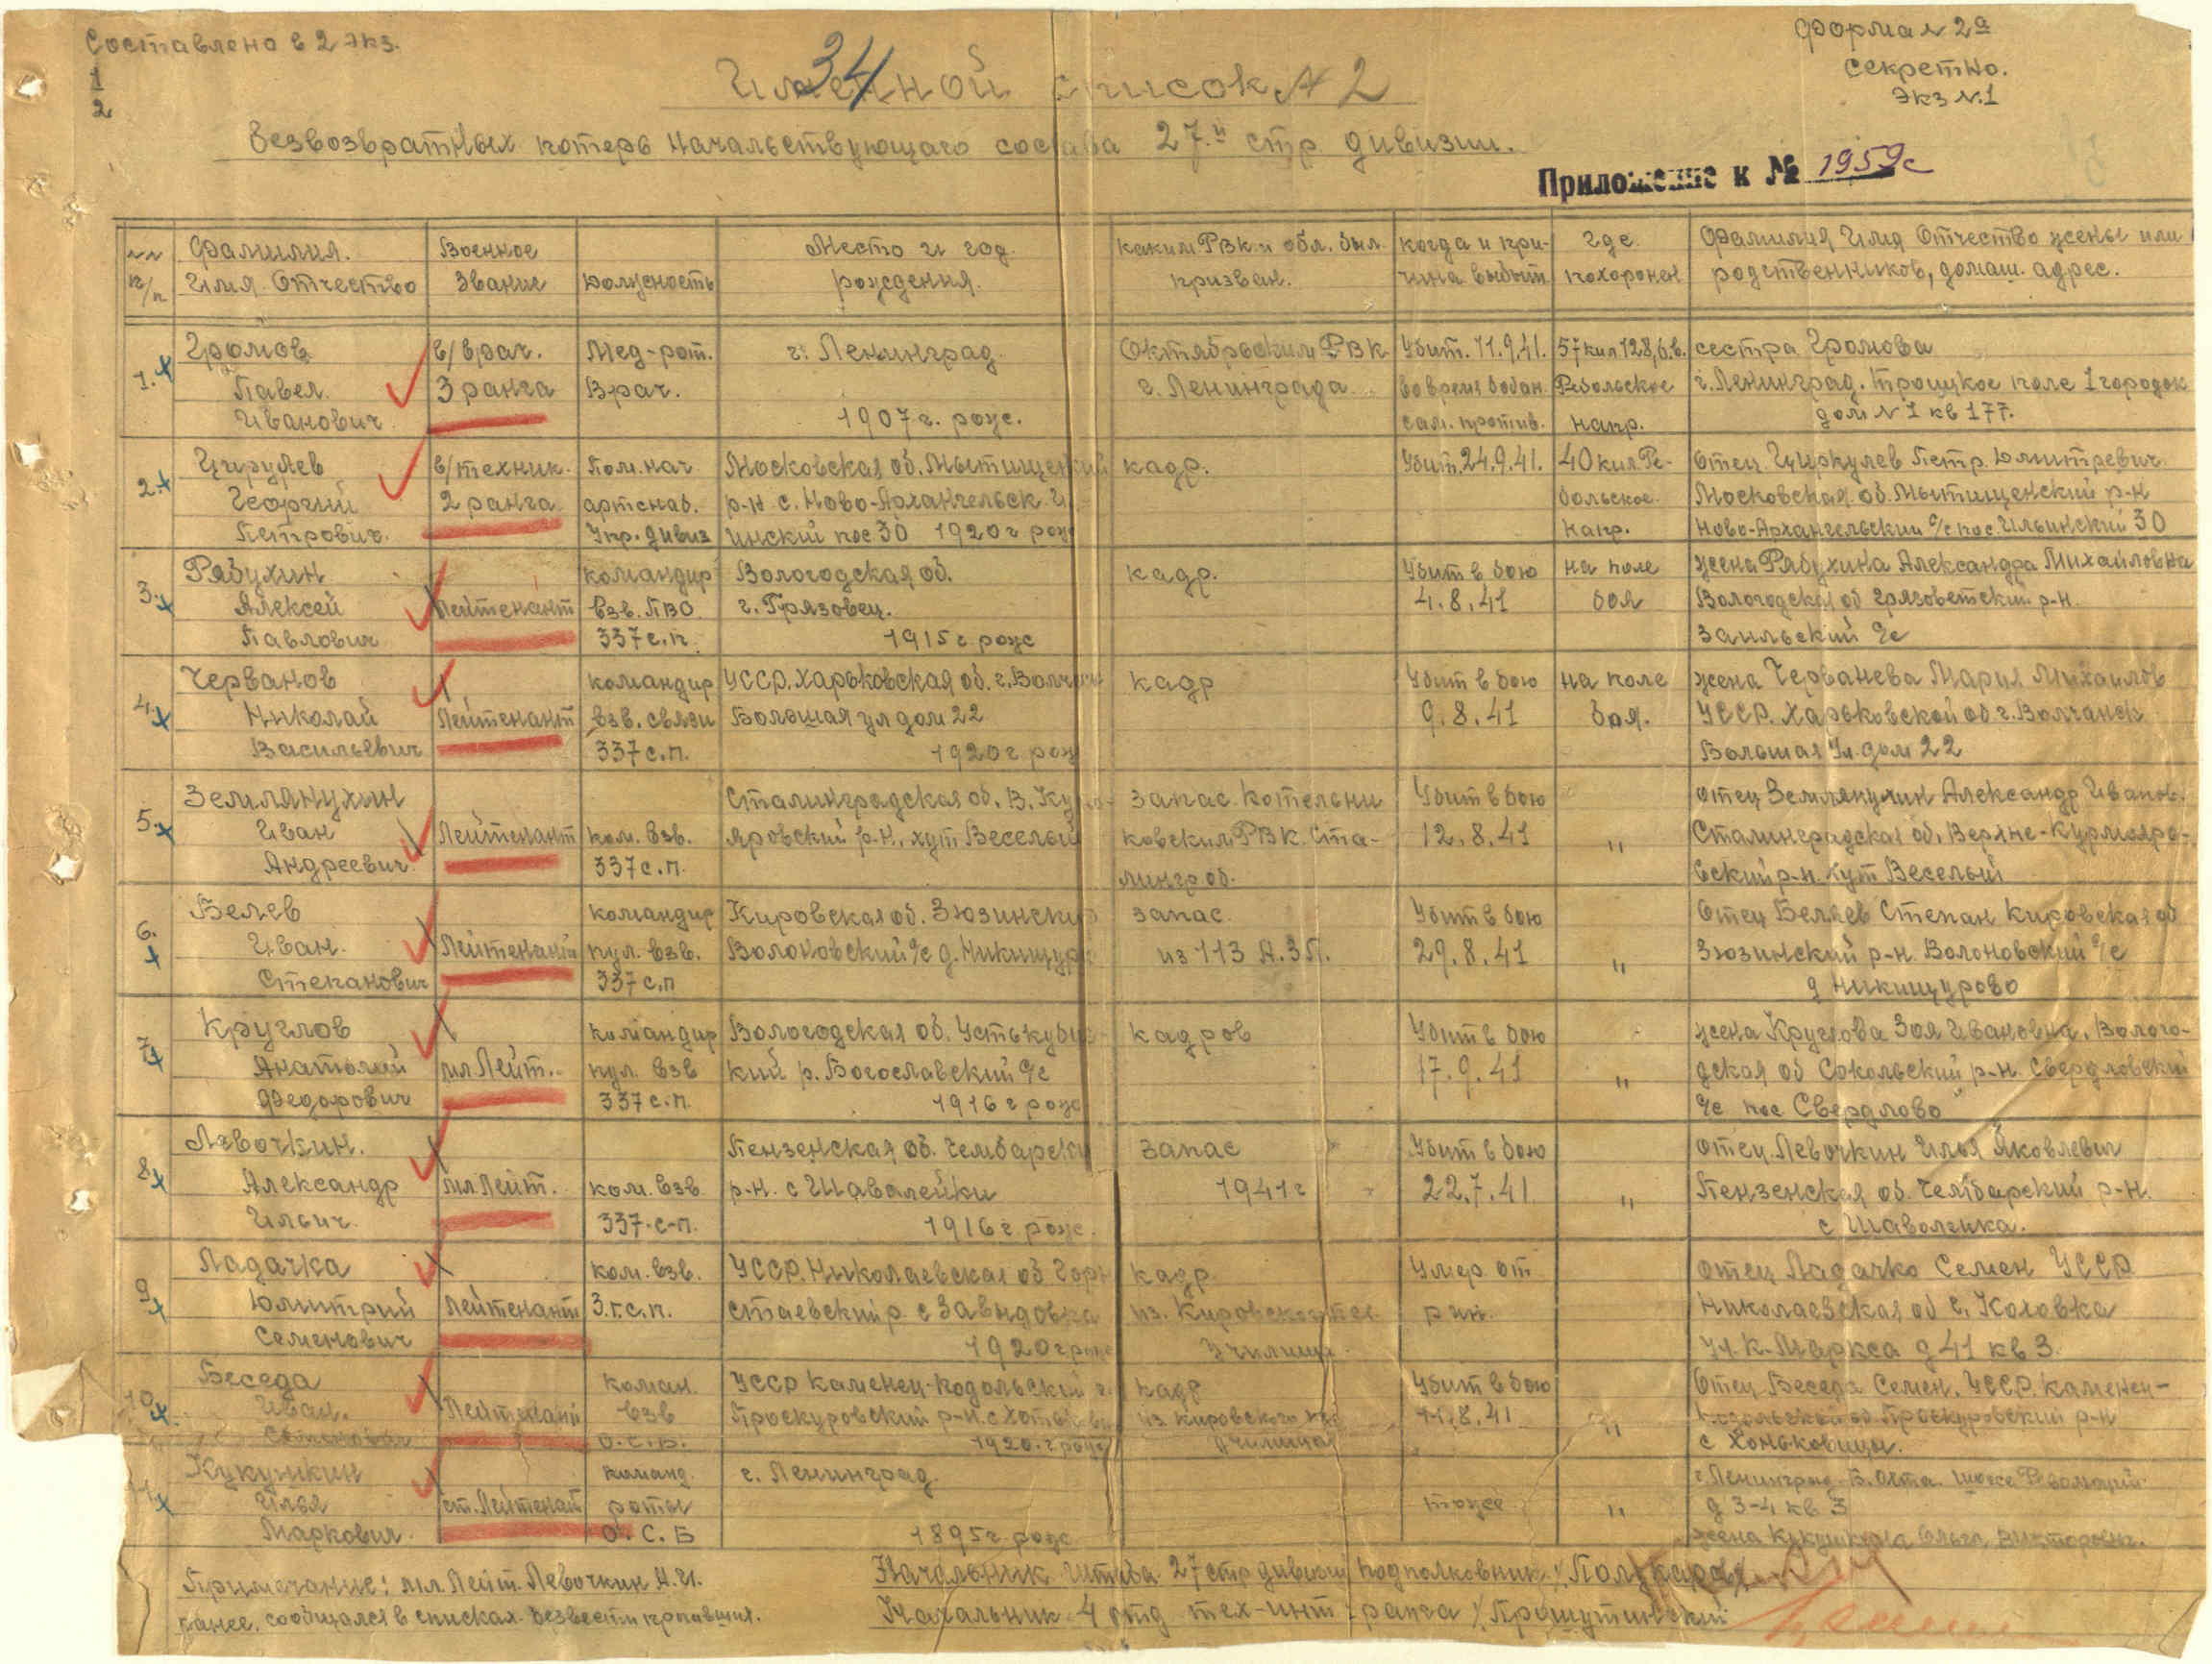 Составлено в 2 экз.
1
2
Форма № 2а
Секретно.
Экз №1
34
Именной список № 2
безвозвратных потерь начальствующаго состава 27.й стр дивизии.
Приложение к № 1959с
№№ п/п
Фамилия.
Имя Отчество
Военное
Звание
Должность
Место и год
рождения.
каким РВК и обл. был
призван.
когда и при-
чина выбыт.
где
похоронен
Фамилия Имя Отчество жены или
родственников, домаш. адрес.
1.
Громов
Павел
Иванович
в/врач.
3 ранга
Мед-рот.
Врач.
г. Ленинград
1907г. рож.
Октябрьским РВК
г. Ленинграда
Убит. 11.9.41.
во время бобан.
сам. против.
57 кил. 128,6.в.
Ребольское
напр.
сестра Громова
г. Ленинград. Троицкое поле 1 городок
дом № 1 кв 177.
2.
Цирулев
Георгий
Петрович.
в/техник.
2 ранга
Пом. нач
артснаб.
Упр. дивиз
Московская об. Мытищенский
р-н с. Ново-Архангельск.
инский пос 30 1920г рож
кадр.
Убит. 24.9.41.
40 кил. Ре-
больское
напр.
Отец Циркулев Петр. Дмитревич
Московская об. Мытищенский р-н
Ново-Архангельский с/с пос. Ильинский 30
3.
Рябухин
Алексей
Павлович
Лейтенант
командир
взв. ПВО
337 с.п.
Вологодская об.
г. Грязовец.
1915г рож
кадр.
Убит в бою
4.8.41
на поле
боя
жена Рябухина Александра Михайловна
Вологодская об Грязоветский р-н.
с/с
4.
Черванов
Николай
Васильевич
Лейтенант
командир
взв. связи
337 с.п.
УССР. Харьковская об. г. Волчанск
Большая ул дом 22
1920г рож
кадр
Убит в бою
9.8.41
на поле
боя.
жена Черванева Мария Михайлов
УССР. Харьковской об г. Волчанск
Большая Ул. дом 22
5.
Землянухин
Иван
Андреевич
Лейтенант
ком. взв.
337 с.п.
Сталинградская об. В. Курмо-
яровский р-н, хут. Веселый
запас Котельни
ковским РВК Ста-
лингр об.
Убит в бою
12.8.41
"
отец Землянухин Александр Иванов.
Сталинградская об. Верхне-Курмояро-
вский р-н. хут Веселый
6.
Белев
Иван.
Степанович
Лейтенант
командир
пул. взв.
337 с.п
Кировская об. Зюзинский
Волоковский с/с д. Никищур
запас.
из 113 А.З.П.
Убит в бою
29.8.41
"
Отец Беляев Степан Кировская об
Зюзинский р-н. Волоновский с/с
д Никищурово
7.
Круглов
Анатолий
Федорович
мл. Лейт.
командир
пул. взв
337 с.п.
Вологодская об. Устькубинс-
кий р. Богославский с/с
1916г рож
кадров
Убит в бою
17.9.41
"
жена Круглова Зоя Ивановна. Волого-
дская об Сокольский р-н. Свердловский
с/с пос Свердлово
8.
Лявочкин.
Александр
Ильич.
мл Лейт.
ком. взв
337-с-п.
Пензенская об. Чембарский
р-н. с Шавалейки
1916г рож.
запас
1941г
Убит в бою
22.7.41
"
отец Левочкин Илья Яковлевич
Пензенская об. Чембарский р-н.
с
9
Ладачка
Дмитрий
Семенович
Лейтенант
ком. взв.
3.г.с.п.
УССР. Николаевская об
р. с
1920г рож
кадр
из. Кировского пех.
училища
Умер от
ран.
отец Ладачко Семен УССР
Николаевская об с.
Ул. К-Маркса д 41 кв 3.
10
Беседа
Иван.
Семенович
Лейтенант
коман.
взв
О.С.Б.
УССР Каменец-Подольский
Проскуровский р-н. с
1920. г рож
кадр
из Кировского пех
училища
Убит в бою
11.8.41
"
Отец Беседа Семен. УССР. Каменец-
Подольской об Проскуровский р-н
с Хоньковицы.
11
Кукушкин
Илья
Маркович.
ст. Лейтенант
команд.
роты
О.С.Б
г. Ленинград
1895г рож
тоже
"
г. Ленинград Б. Охта. шоссе Революции
д 3-4 кв 3
жена Кукушкина Ольга Викторовн.
Примечание: мл. Лейт. Левочкин А.И.
ранее. сообщался в списках безвести пропавших.
Начальник Штаба 27 стр дивизии подполковник
Начальник 4 отд тех-инт ранга